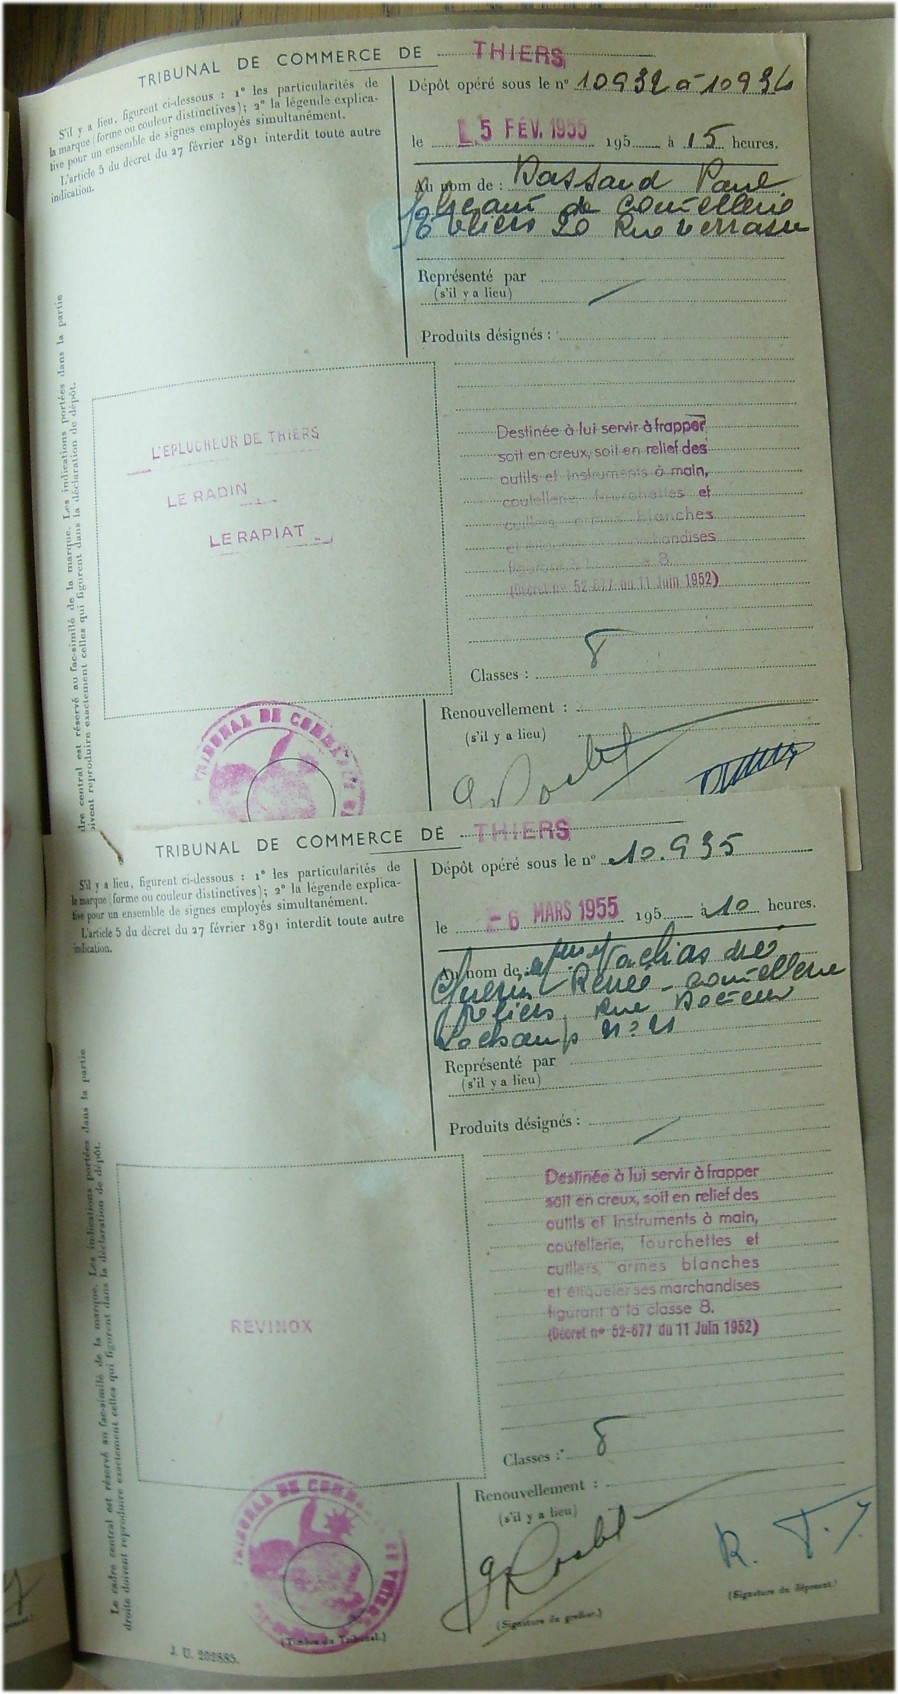 TRIBUNAL DE COMMERCE DE THIERS
S'il y a lieu, figurent ci-dessous : 1° les particularités de
la marque (forme ou couleur distinctives); 2° la légende explica-
tive pour un ensemble de signes employés simultanément.
L'article 5 du décret du 27 février 1891 interdit toute autre
indication.
Dépôt opéré sous le n° 10932 à 10934
le 5 FÉV. 1955 195 à 15 heures.
Au nom de : Dassaud Paul
de coutellerie
20 Rue
Représenté par
(s'il y a lieu)
Produits désignés :
dre central est réservé au fac-similé de la marque. Les indications portées dans la partie
oivent reproduire exactement celles qui figurent dans la déclaration de dépôt.
L'EPLUCHEUR DE THIERS
LE RADIN
LE RAPIAT
Destinée à lui servir à frapper
soit en creux, soit en relief des
outils et instruments à main,
coutellerie, fourchettes et
cuillers, armes blanches
et étiqueter ses marchandises
figurant à la classe 8.
(Décret n° 52-677 du 11 Juin 1952)
Classes : 8
Renouvellement :
(s'il y a lieu)
TRIBUNAL DE COMM
TRIBUNAL DE COMMERCE DE THIERS
S'il y a lieu, figurent ci-dessous : 1° les particularités de
la marque (forme ou couleur distinctives); 2° la légende explica-
tive pour un ensemble de signes employés simultanément.
L'article 5 du décret du 27 février 1891 interdit toute autre
indication.
Dépôt opéré sous le n° 10.935
le - 6 MARS 1955 195 à 10 heures.
Au nom de :
Guérin Renée - coutellerie
Rue Docteur
n° 21
Représenté par
(s'il y a lieu)
Produits désignés :
Le cadre central est réservé au fac-similé de la marque. Les indications portées dans la partie
droite doivent reproduire exactement celles qui figurent dans la déclaration de dépôt.
REVINOX
Destinée à lui servir à frapper
soit en creux, soit en relief des
outils et instruments à main,
coutellerie, fourchettes et
cuillers, armes blanches
et étiqueter ses marchandises
figurant à la classe 8.
(Décret n° 52-677 du 11 Juin 1952)
Classes : 8
Renouvellement :
(s'il y a lieu)
TRIBUNAL DE COMM DE THIERS
R. T. J.
(Timbre du Tribunal.)
(Signature du greffier.)
(Signature du déposant.)
J. U. 202885.